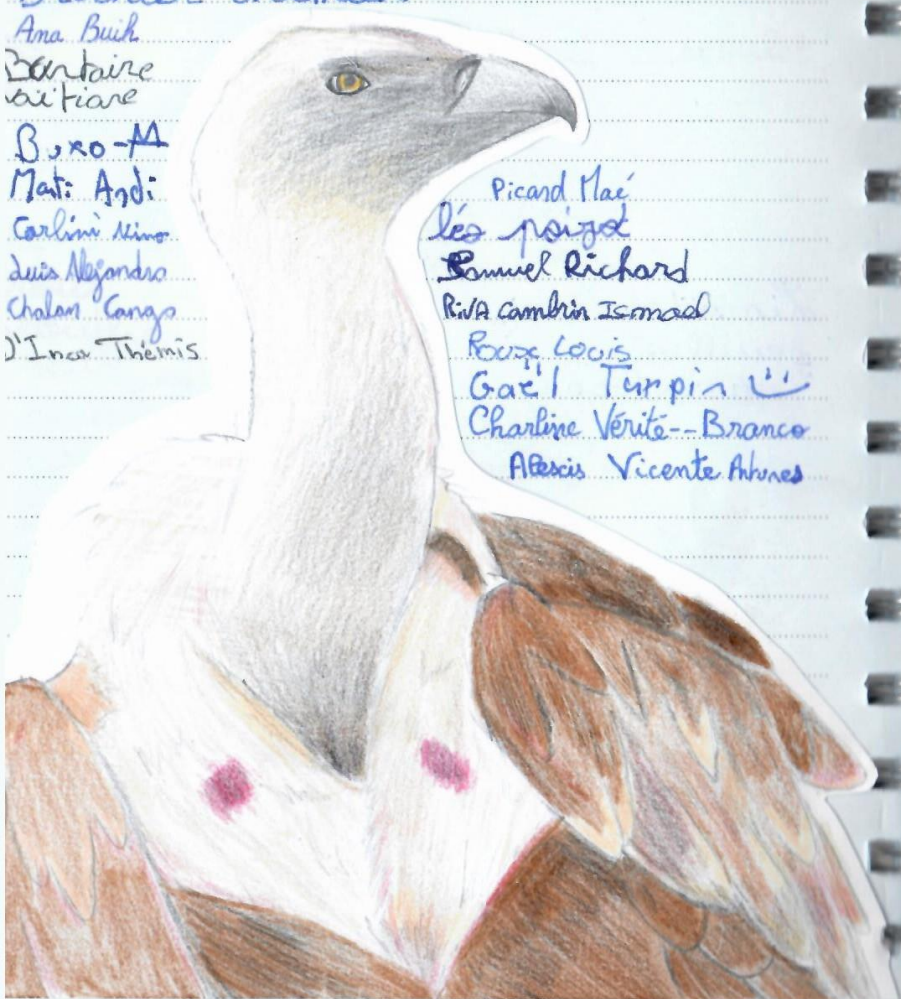 Ana Buih
Bontaire
vaitiare
Buxo-M
Mati Andi
Carlini Nino
Luis Alejandro
Chalan Cango
D'Inca Thémis
Picard Maé
léo poizot
Samuel Richard
RIVA Cambrin Ismael
Rouze Louis
Gaël Turpin
Charline Vérité--Branco
Alexis Vicente Antunes